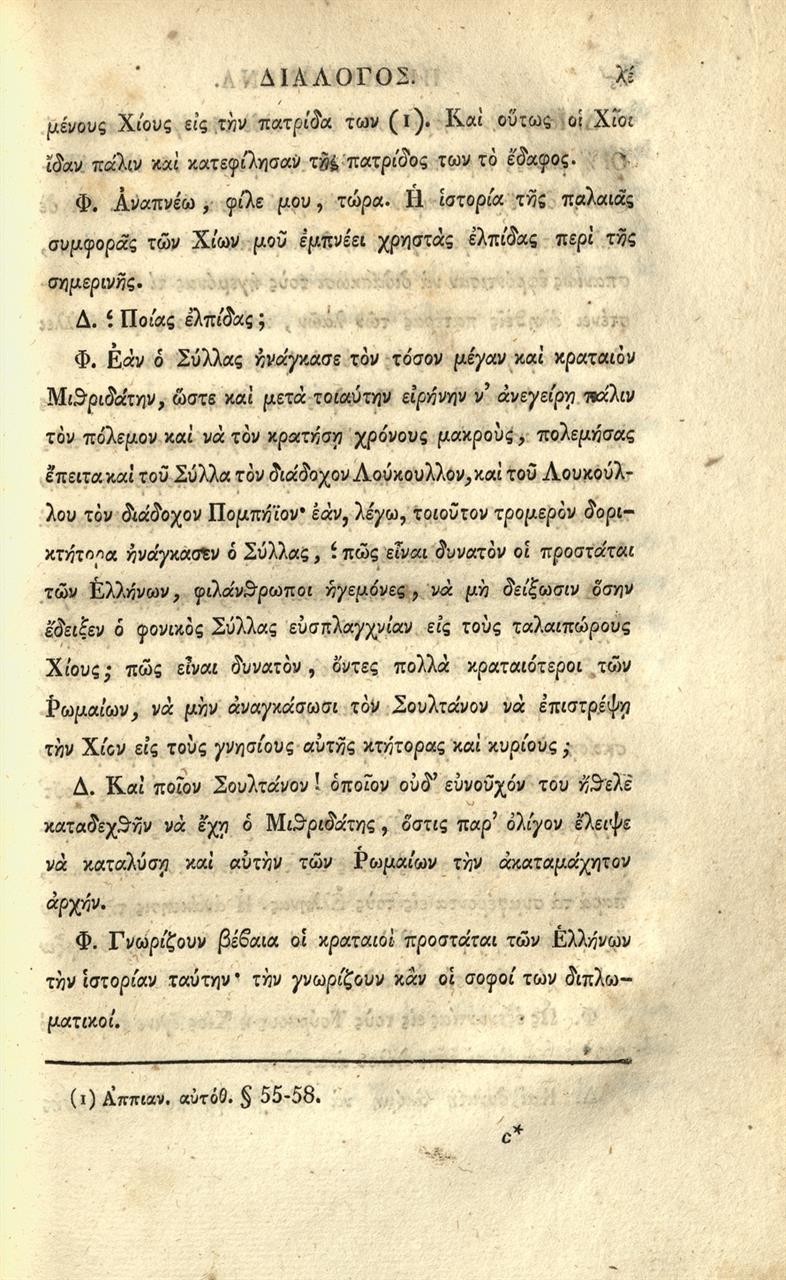 ΔΙΑΛΟΓΟΣ. λέ
μένους Χίους εἰς τὴν πατρίδα των (1). Καὶ οὕτως οἱ Χῖοι
ἴδαν πάλιν καὶ κατεφίλησαν τῆς πατρίδος των τὸ ἔδαφος.
Φ. Ἀναπνέω, φίλε μου, τώρα. Ἡ ἱστορία τῆς παλαιᾶς
συμφορᾶς τῶν Χίων μοῦ ἐμπνέει χρηστὰς ἐλπίδας περὶ τῆς
σημερινῆς.
Δ. ⸮ Ποίας ἐλπίδας;
Φ. Ἐὰν ὁ Σύλλας ἠνάγκασε τὸν τόσον μέγαν καὶ κραταιὸν
Μιθριδάτην, ὥστε καὶ μετὰ τοιαύτην εἰρήνην ν’ ἀνεγείρῃ πάλιν
τὸν πόλεμον καὶ νὰ τὸν κρατήσῃ χρόνους μακροὺς, πολεμήσας
ἔπειτα καὶ τοῦ Σύλλα τὸν διάδοχον Λούκουλλον, καὶ τοῦ Λουκούλ-
λου τὸν διάδοχον Πομπήϊον· ἐὰν, λέγω, τοιοῦτον τρομερὸν δορι-
κτήτορα ἠνάγκασεν ὁ Σύλλας, ⸮ πῶς εἶναι δυνατὸν οἱ προστάται
τῶν Ἑλλήνων, φιλάνθρωποι ἡγεμόνες, νὰ μὴ δείξωσιν ὅσην
ἔδειξεν ὁ φονικὸς Σύλλας εὐσπλαγχνίαν εἰς τοὺς ταλαιπώρους
Χίους; πῶς εἶναι δυνατὸν, ὄντες πολλὰ κραταιότεροι τῶν
Ῥωμαίων, νὰ μὴν ἀναγκάσωσι τὸν Σουλτάνον νὰ ἐπιστρέψῃ
τὴν Χίον εἰς τοὺς γνησίους αὐτῆς κτήτορας καὶ κυρίους;
Δ. Καὶ ποῖον Σουλτάνον! ὁποῖον οὐδ’ εὐνοῦχόν του ἤθελε
καταδεχθῆν νὰ ἔχῃ ὁ Μιθριδάτης, ὅστις παρ’ ὀλίγον ἔλειψε
νὰ καταλύσῃ καὶ αὐτὴν τῶν Ῥωμαίων τὴν ἀκαταμάχητον
ἀρχήν.
Φ. Γνωρίζουν βέβαια οἱ κραταιοὶ προστάται τῶν Ἑλλήνων
τὴν ἱστορίαν ταύτην· τὴν γνωρίζουν κἂν οἱ σοφοί των διπλω-
ματικοί.
(1) Ἀππιαν. αὐτόθ. § 55-58.
c*